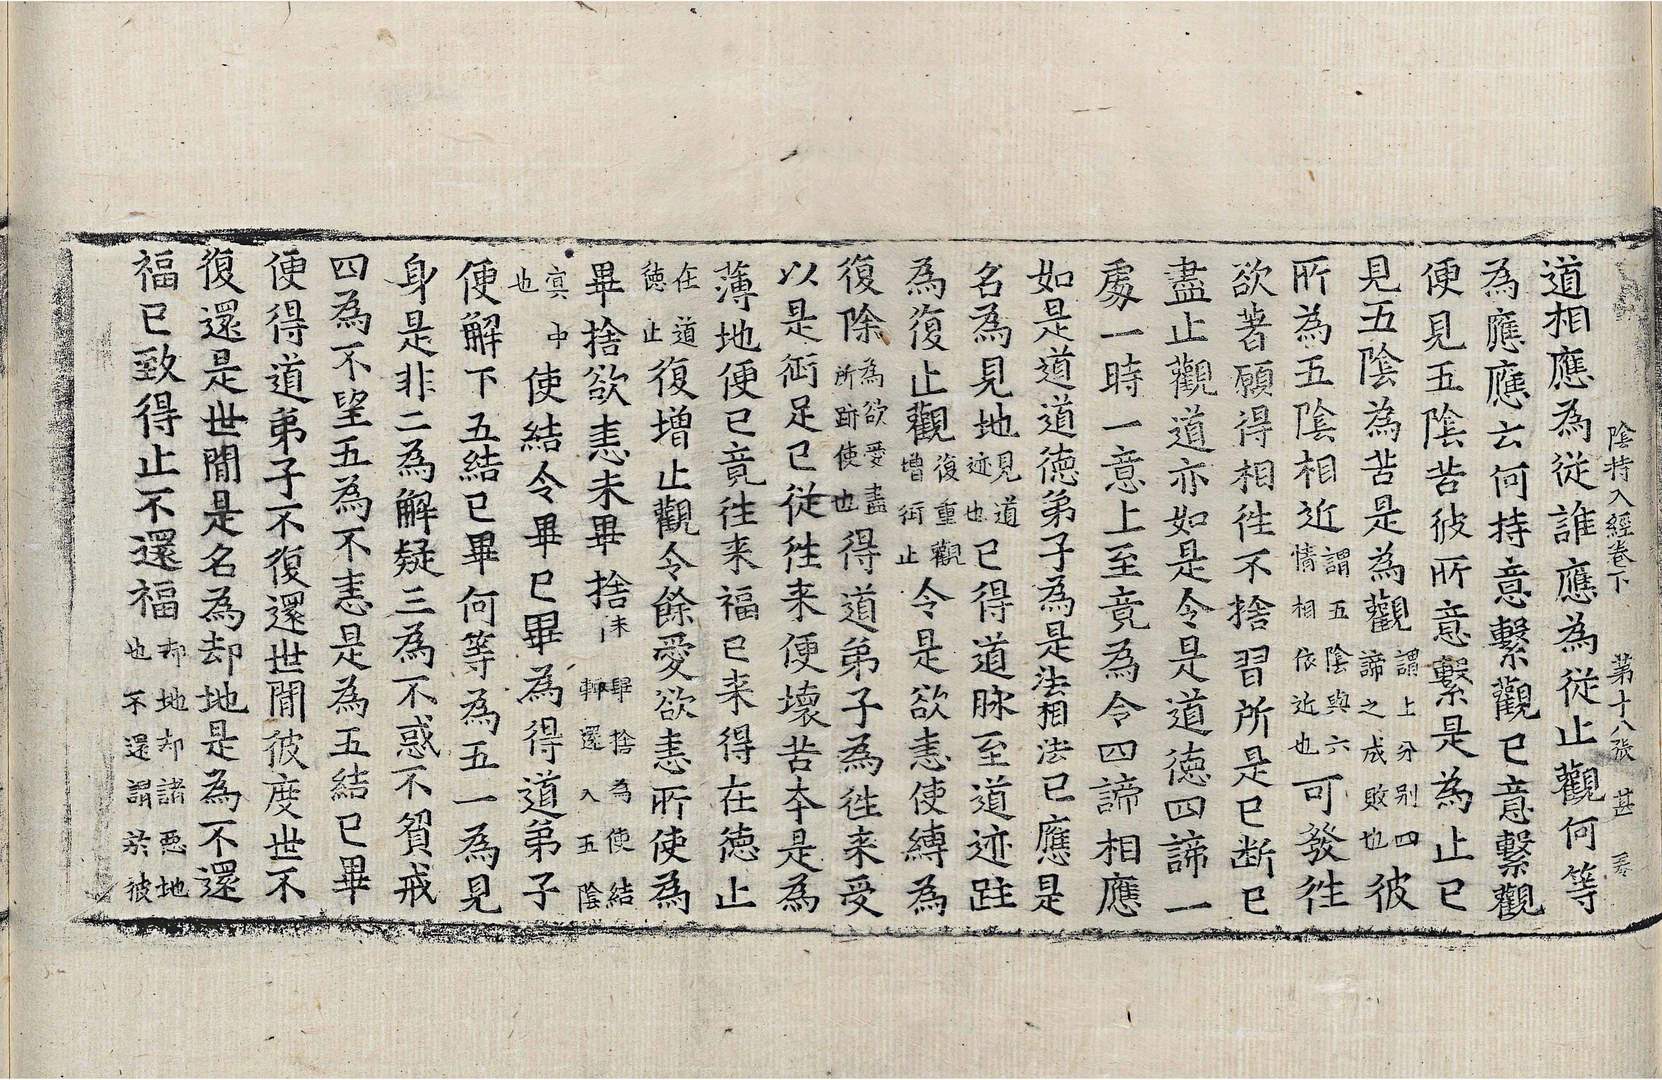 陰持入經卷下　第十八張　甚
道相應為從誰應為從止觀何等
為應應云何持意繫觀已意繫觀
便見五陰苦彼所意繫是為止已
見五陰為苦是為觀謂上分別四諦之成敗也彼
所為五陰相近謂五陰與六情相依近也可發往
欲著願得相往不捨習所是已断已
盡止觀道亦如是令是道德四諦一
處一時一意上至竟為令四諦相應
如是道道德弟子為是法相法已應是
名為見地見道迹也已得道脉至道迹跓
為復止觀復重觀增術止令是欲恚使縛為
復除為欲愛盡所跡使也得道弟子為往来受
以是術足已従往来便壞苦夲是為
薄地便已竟往来福已来得在德止
在道德止復增止觀令餘愛欲恚所使為
畢捨欲恚未畢捨未畢捨為使結轉還入五陰
冥中也使結令畢已畢為得道弟子
便解下五結已畢何等為五一為見
身是非二為解疑三為不惑不貿戒
四為不望五為不恚是為五結已畢
便得道弟子不復還世間彼度世不
復還是世間是名為却地是為不還
福已致得止不還福却地却諸惡地也不還謂於彼